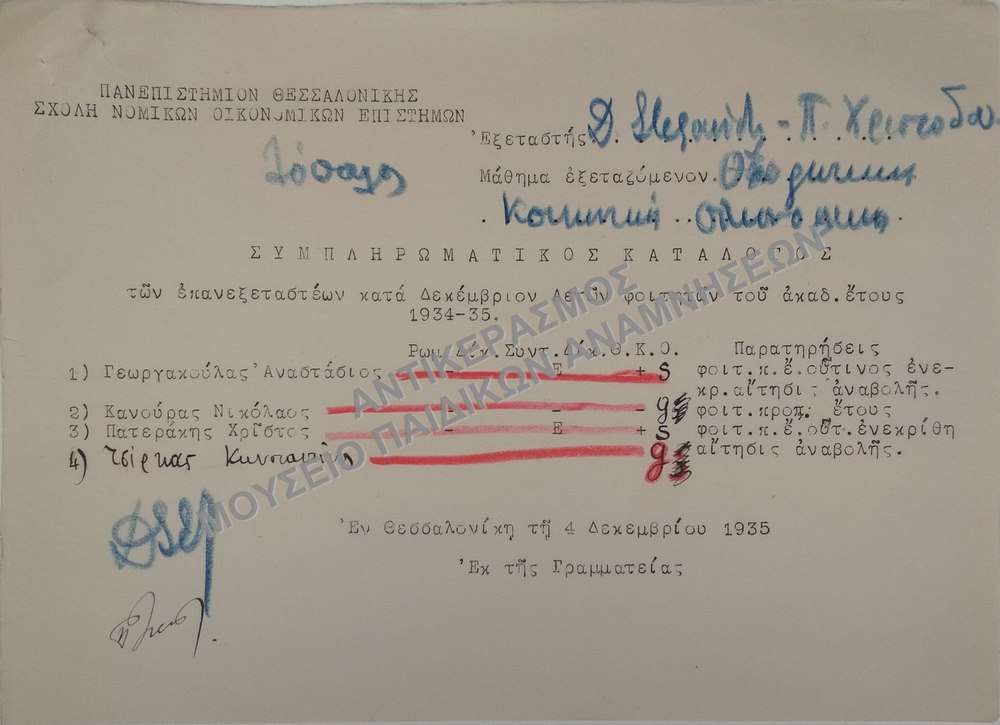 ΠΑΝΕΠΙΣΤΗΜΙΟΝ ΘΕΣΣΑΛΟΝΙΚΗΣ
ΣΧΟΛΗ ΝΟΜΙΚΩΝ ΟΙΚΟΝΟΜΙΚΩΝ ΕΠΙΣΤΗΜΩΝ
Ἐξεταστής D.
Μάθημα ἐξεταζόμενον.
Σ Υ Μ Π Λ Η Ρ Ω Μ Α Τ Ι Κ Ο Σ Κ Α Τ Α Λ Ο Γ Ο Σ
τῶν ἐπανεξεταστέων κατά Δεκέμβριον Δετῶν φοιτητῶν τοῦ ἀκαδ.ἔτους
1934-35.
Ρωμ.Δίκ.Συντ.Δίκ.Θ.Κ.Ο. Παρατηρήσεις
1) Γεωργακούλας Ἀναστάσιος - Ε + S φοιτ.π.ἔ.οὗτινος ἐνε-
κρ.αἴτησις ἀναβολῆς.
2) Κανούρας Νικόλαος - - - g φοιτ.προπ. ἔτους
3) Πατεράκης Χρῖστος - Ε + S φοιτ.π.ἔ.οὗτ.ἐνεκρίθη
αἴτησις ἀναβολῆς.
4) Τσίρκας g
Ἐν Θεσσαλονίκη τῇ 4 Δεκεμβρίου 1935
Ἐκ τῆς Γραμματείας
ΑΝΤΙΚΕΡΑΣΜΟΣ
ΜΟΥΣΕΙΟ ΠΑΙΔΙΚΩΝ ΑΝΑΜΝΗΣΕΩΝ